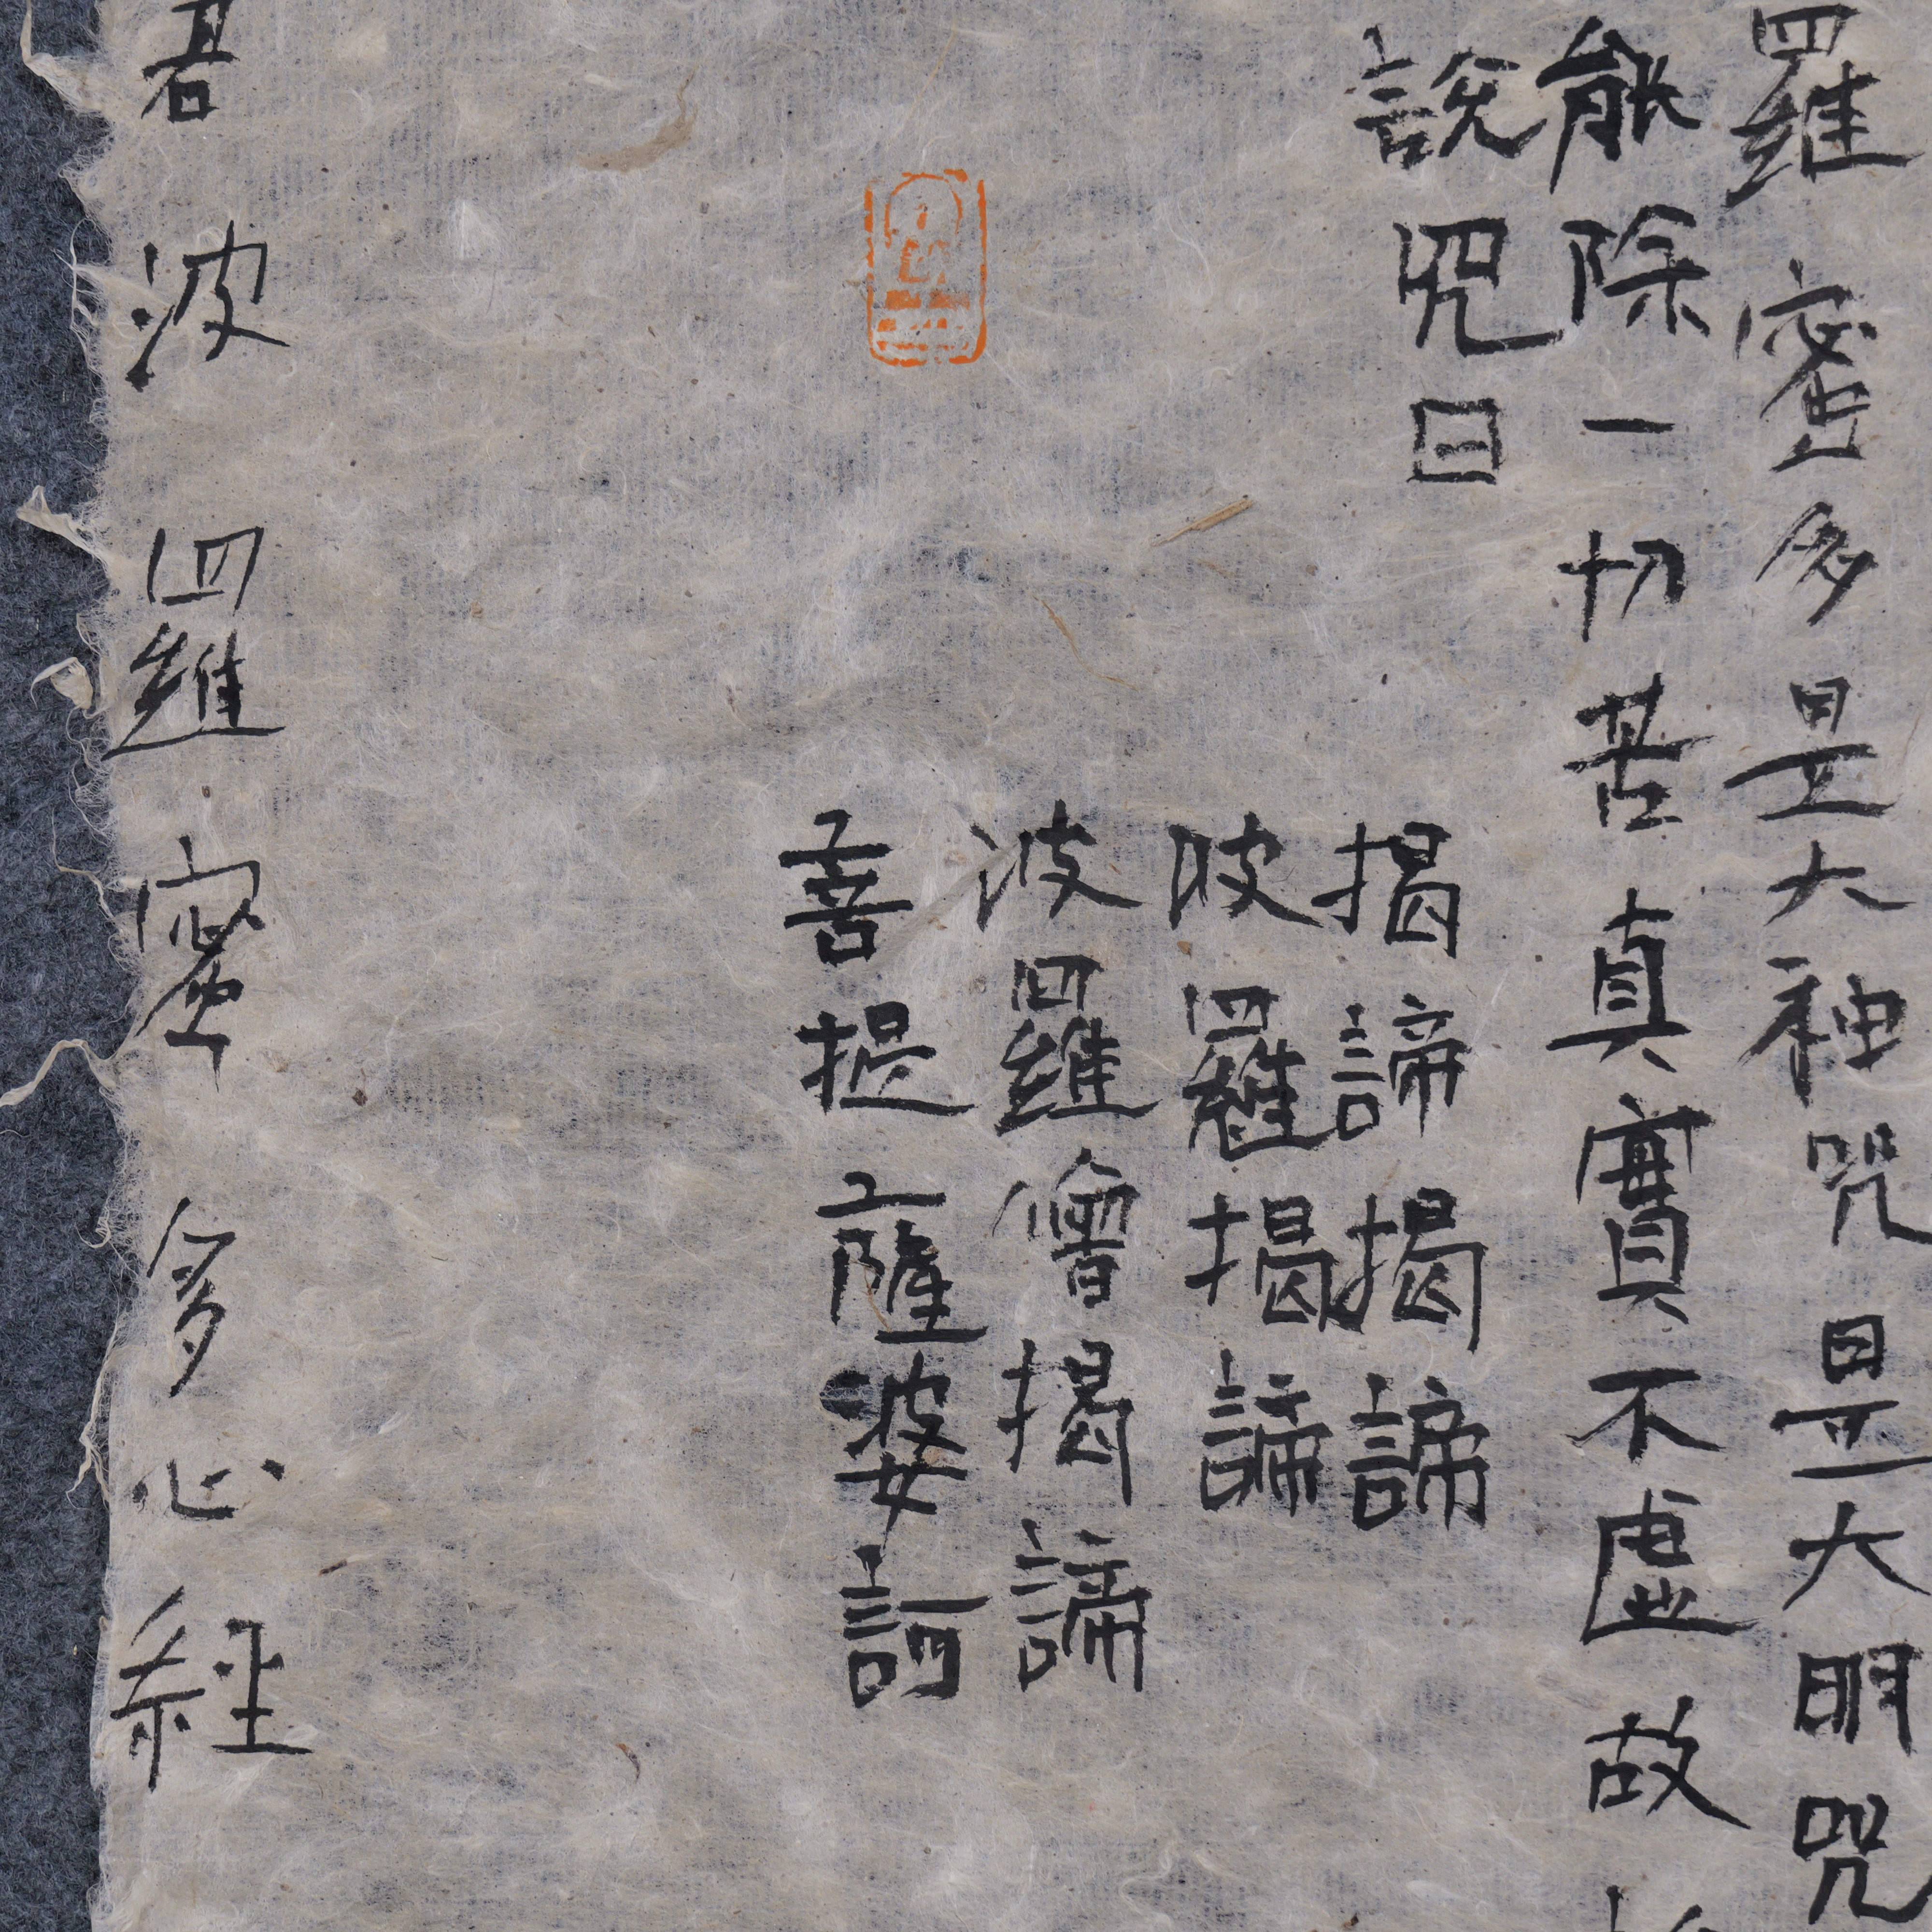 羅密多是大神咒是大明咒
能除一切苦真實不虛故
說咒曰
揭諦揭諦
波羅揭諦
波羅僧揭諦
菩提薩婆訶
若波羅密多心經